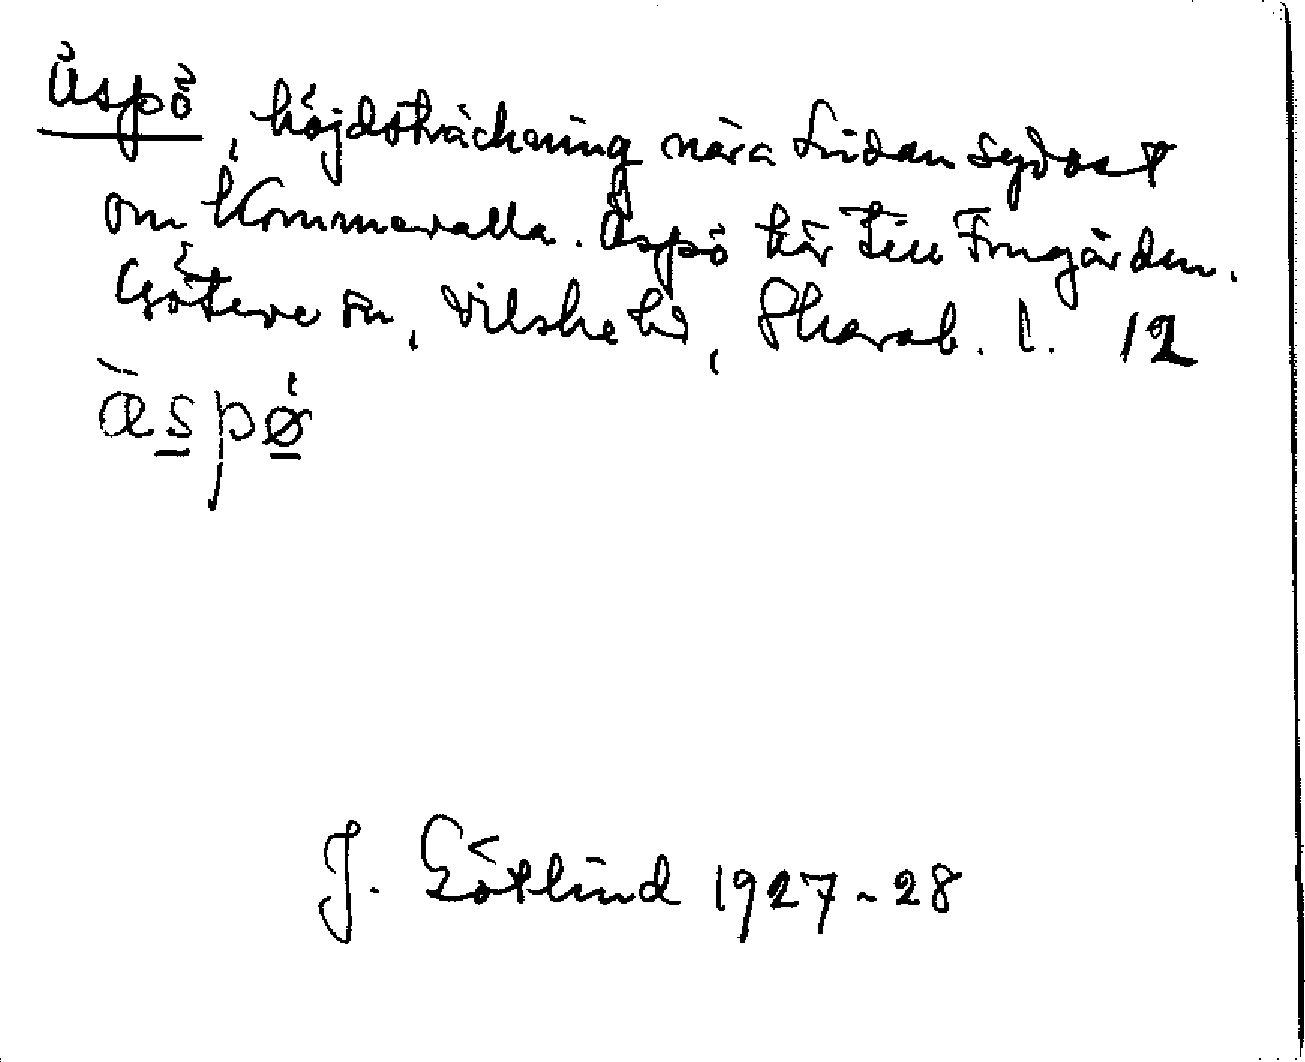 Äspö, höjdsträckning nära Lidan sydost
om Kommavalla. Äspö hör till Frugården.
Göteve sn, Vilske hd, Skarab. l. 12
æspø
J. Götlind 1927-28